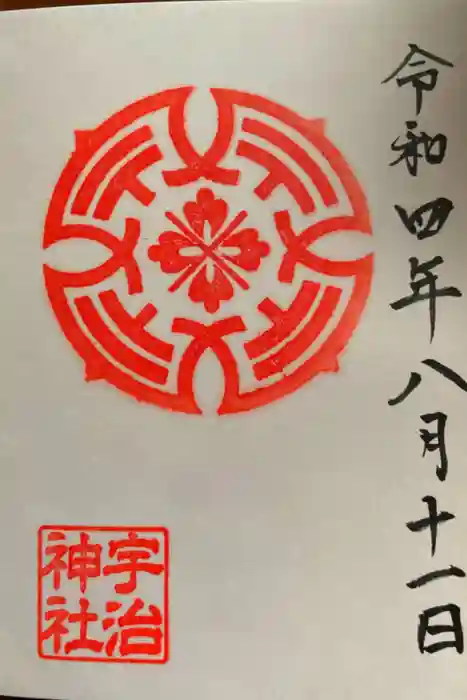 令和四年八月十一日
宇治
神社